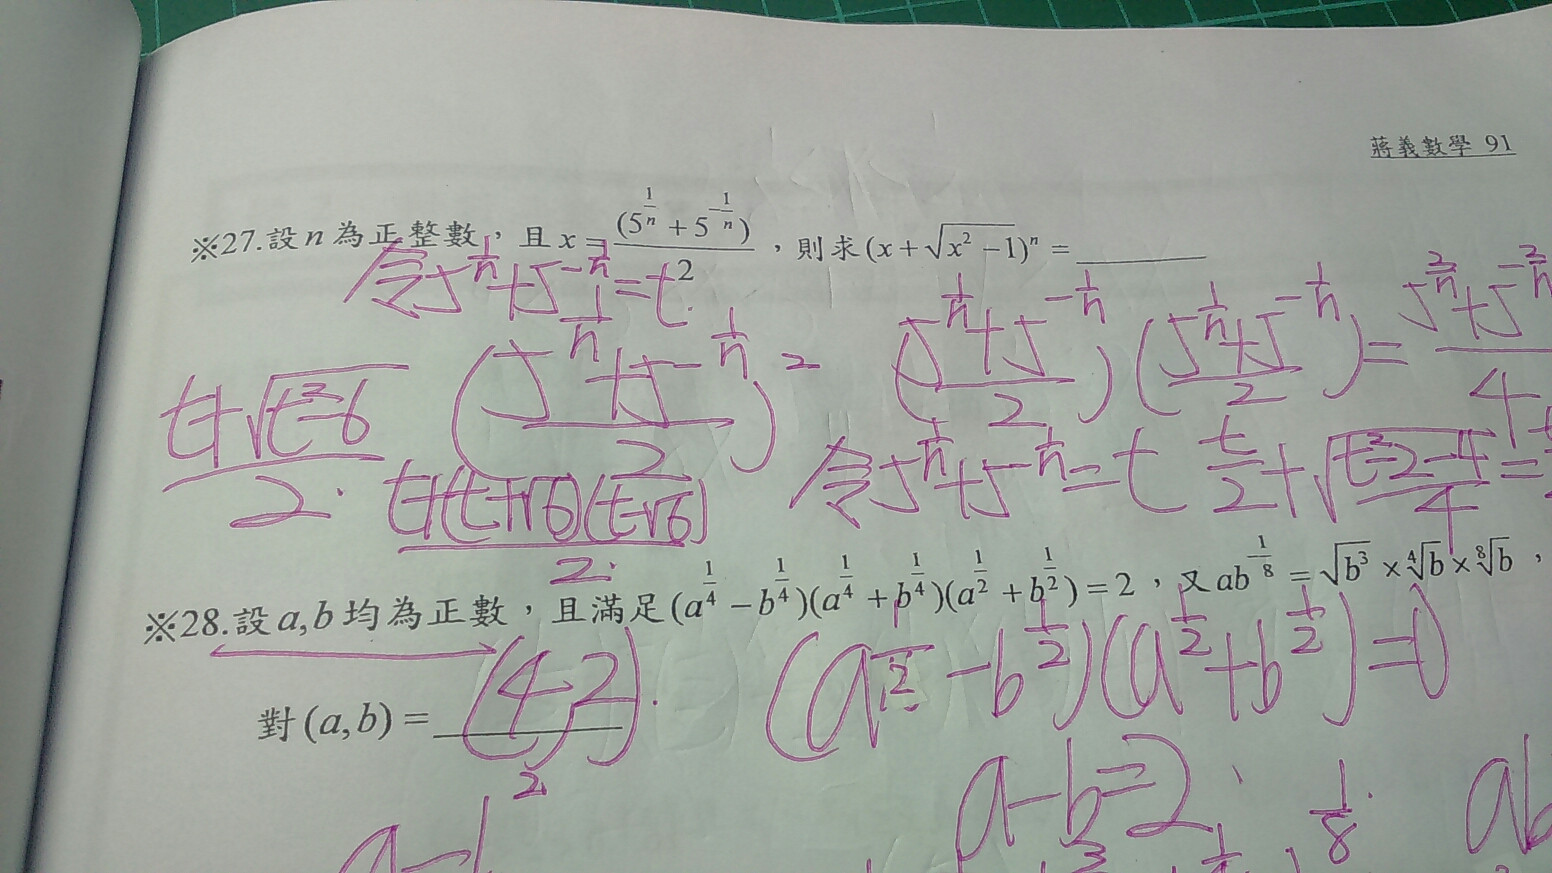 蔣義數學 91
※27.設n為正整數，且x=\frac{(5^{\frac{1}{n}}+5^{-\frac{1}{n}})}{2}，則求(x+\sqrt{x^2-1})^n=______
令5^{\frac{1}{n}}+5^{-\frac{1}{n}}=t.
\frac{t+\sqrt{t^2-6}}{2}. (\frac{5^{\frac{1}{n}}+5^{-\frac{1}{n}}}{2})^2 (\frac{5^{\frac{1}{n}}+5^{-\frac{1}{n}}}{2})(\frac{5^{\frac{1}{n}}+5^{-\frac{1}{n}}}{2})=\frac{5^{\frac{2}{n}}+5^{-\frac{2}{n}}}{4}
\frac{t+(t+\sqrt{6})(t-\sqrt{6})}{2}. 令5^{\frac{1}{n}}+5^{-\frac{1}{n}}=t \frac{t}{2}+\sqrt{\frac{t^2-2-4}{4}}=
※28.設a,b均為正數，且滿足(a^{\frac{1}{4}}-b^{\frac{1}{4}})(a^{\frac{1}{4}}+b^{\frac{1}{4}})(a^{\frac{1}{2}}+b^{\frac{1}{2}})=2，又ab^{\frac{1}{8}}=\sqrt{b^3}×\sqrt[4]{b}×\sqrt[8]{b}，
(a^{\frac{1}{2}}-b^{\frac{1}{2}})(a^{\frac{1}{2}}+b^{\frac{1}{2}})=0
對(a,b)=(4,2).
a-b=2
\frac{1}{8}
ab